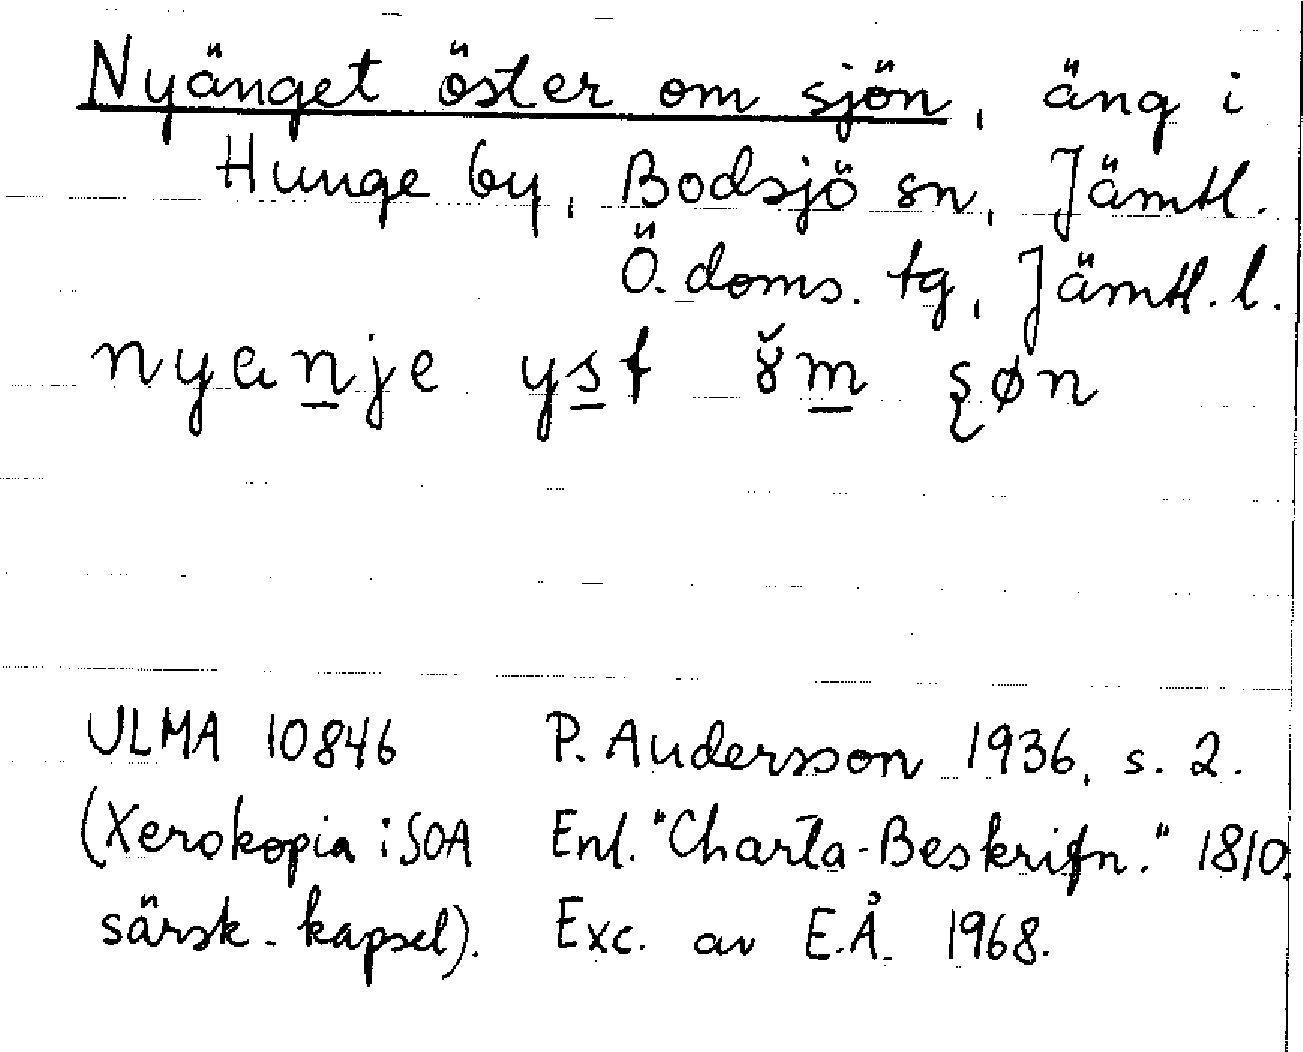 Nyänget öster om sjön, äng i
Hunge by, Bodsjö sn, Jämtl.
Ö. doms. tg, Jämtl. l.
nyanje yst ɤ̆m ʂøn
ULMA 10846 P. Andersson 1936, s. 2.
(Xerokopia i SOA Enl. "Charta-Beskrifn." 1810.
särsk. kapsel). Exc. av E.Å. 1968.